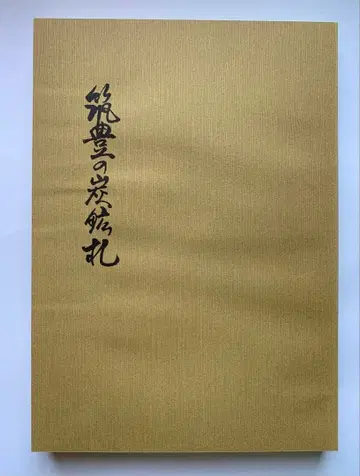 筑豊の炭鉱札